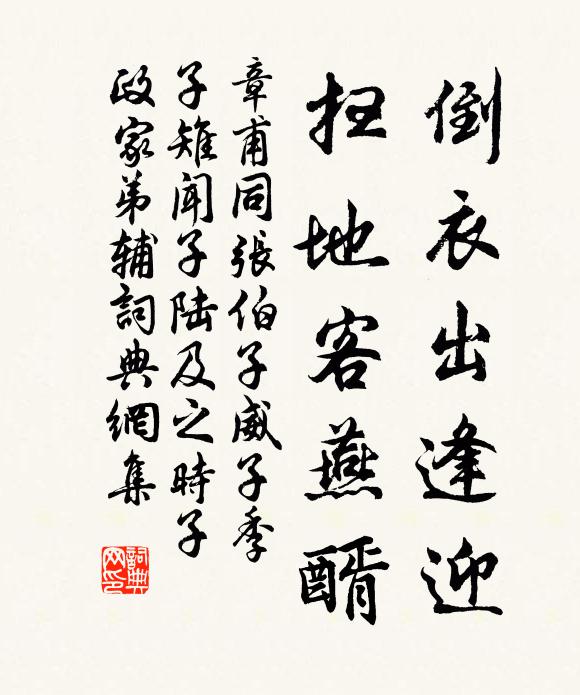 倒衣出逢迎
扫地客燕醑
章甫同張伯子威子季
子雉聞子陸及之時子
政家弟輔詞典網集
詞典网印